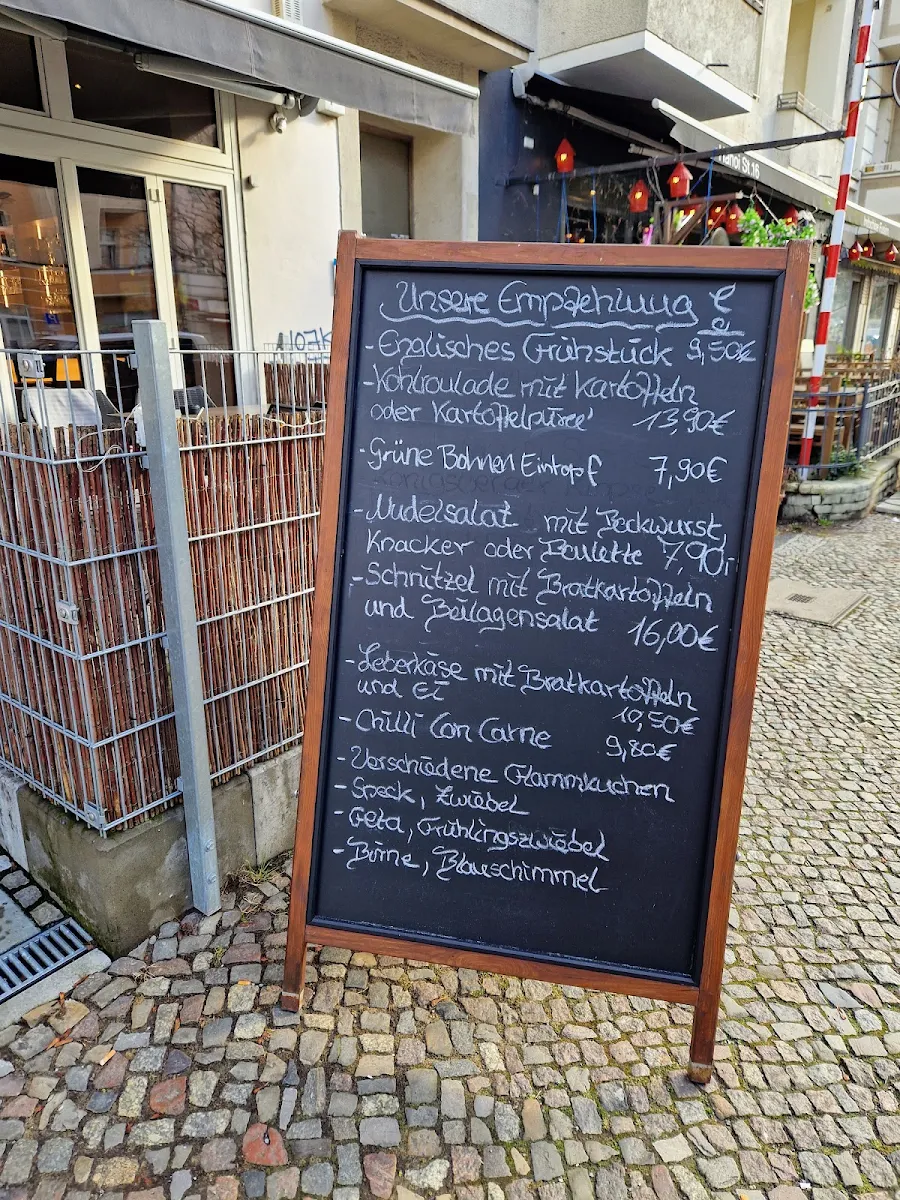 Hanoi St.16
Unsere Empfehlung €
- Englisches Frühstück 9,50€
- Kohlroulade mit Kartoffeln
oder Kartoffelpüree 13,90€
- Grüne Bohnen Eintopf 7,90€
- Nudelsalat mit Bockwurst,
Knacker oder Boulette 7,90,-
- Schnitzel mit Bratkartoffeln
und Beilagensalat 16,00€
- Leberkäse mit Bratkartoffeln
und Ei 10,50€
- Chilli Con Carne 9,80€
- Verschiedene Flammkuchen
- Speck, Zwiebel
- Feta, Frühlingszwiebel
- Birne, Blauschimmel